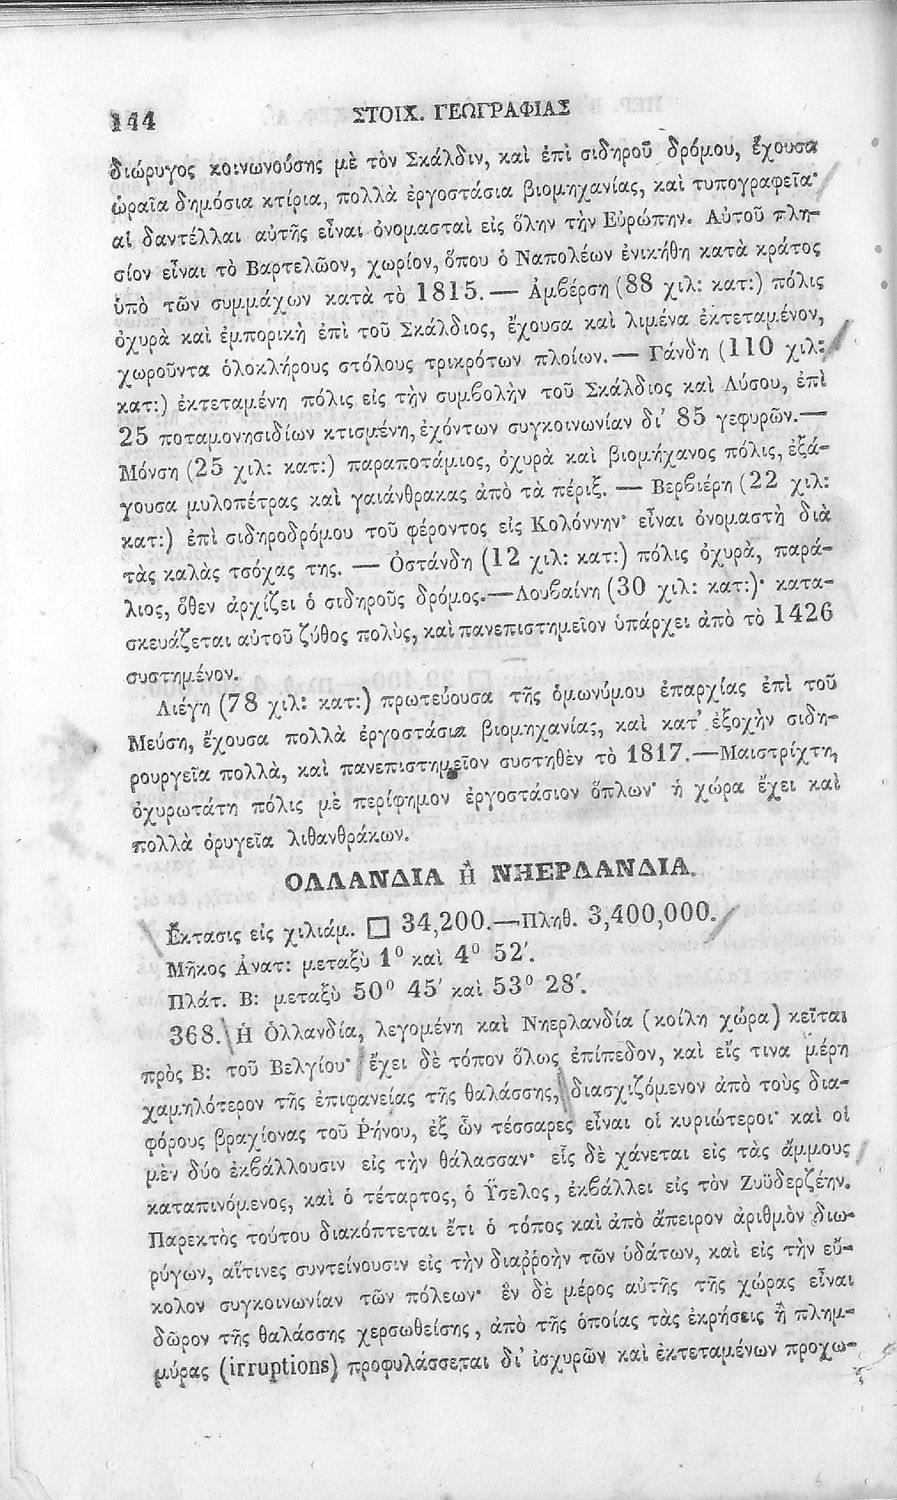 144
ΣΤΟΙΧ. ΓΕΩΓΡΑΦΙΑΣ
διώρυγος κοινωνούσης μὲ τὸν Σκάλδιν, καὶ ἐπὶ σιδηροῦ δρόμου, ἔχουσα
ὡραῖα δημόσια κτίρια, πολλὰ ἐργοστάσια βιομηχανίας, καὶ τυπογραφεῖα·
αἱ δαντέλλαι αὐτῆς εἶναι ὀνομασταὶ εἰς ὅλην τὴν Εὐρώπην. Αὐτοῦ πλη-
σίον εἶναι τὸ Βαρτελῶον, χωρίον, ὅπου ὁ Ναπολέων ἐνικήθη κατὰ κράτος
ὑπὸ τῶν συμμάχων κατὰ τὸ 1815. — Ἀμϐέρση (88 χιλ: κατ:) πόλις
ὀχυρὰ καὶ ἐμπορικὴ ἐπὶ τοῦ Σκάλδιος, ἔχουσα καὶ λιμένα ἐκτεταμένον,
χωροῦντα ὁλοκλήρους στόλους τρικρότων πλοίων. — Γάνδη (110 χιλ:
κατ:) ἐκτεταμένη πόλις εἰς τὴν συμϐολὴν τοῦ Σκάλδιος καὶ Λύσου, ἐπὶ
25 ποταμονησιδίων κτισμένη, ἐχόντων συγκοινωνίαν δι' 85 γεφυρῶν. —
Μόνση (25 χιλ: κατ:) παραποτάμιος, ὀχυρὰ καὶ βιομήχανος πόλις, ἐξά-
γουσα μυλοπέτρας καὶ γαιάνθρακας ἀπὸ τὰ πέριξ. — Βερϐιέρη (22 χιλ:
κατ:) ἐπὶ σιδηροδρόμου τοῦ φέροντος εἰς Κολόννην· εἶναι ὀνομαστὴ διὰ
τὰς καλὰς τσόχας της. — Ὀστάνδη (12 χιλ: κατ:) πόλις ὀχυρὰ, παρά-
λιος, ὅθεν ἀρχίζει ὁ σιδηροῦς δρόμος. — Λουϐαίνη (30 χιλ: κατ:)· κατα-
σκευάζεται αὐτοῦ ζύθος πολὺς, καὶ πανεπιστημεῖον ὑπάρχει ἀπὸ τὸ 1426
συστημένον.
Λιέγη (78 χιλ: κατ:) πρωτεύουσα τῆς ὁμωνύμου ἐπαρχίας ἐπὶ τοῦ
Μεύση, ἔχουσα πολλὰ ἐργοστάσια βιομηχανίας, καὶ κατ' ἐξοχὴν σιδη-
ρουργεῖα πολλὰ, καὶ πανεπιστημεῖον συστηθὲν τὸ 1817. — Μαιστρίχτη,
ὀχυρωτάτη πόλις μὲ περίφημον ἐργοστάσιον ὅπλων· ἡ χώρα ἔχει καὶ
πολλὰ ὀρυγεῖα λιθανθράκων.
ΟΛΛΑΝΔΙΑ Ἢ ΝΗΕΡΛΑΝΔΙΑ.
Ἔκτασις εἰς χιλιάμ. □ 34,200. — Πληθ. 3,400,000.
Μῆκος Ἀνατ: μεταξὺ 1° καὶ 4° 52'.
Πλάτ. Β: μεταξὺ 50° 45' καὶ 53° 28'.
368. Ἡ Ὁλλανδία, λεγομένη καὶ Νηερλανδία (κοίλη χώρα) κεῖται
πρὸς Β: τοῦ Βελγίου· ἔχει δὲ τόπον ὅλως ἐπίπεδον, καὶ εἴς τινα μέρη
χαμηλότερον τῆς ἐπιφανείας τῆς θαλάσσης, διασχιζόμενον ἀπὸ τοὺς δια-
φόρους βραχίονας τοῦ Ῥήνου, ἐξ ὧν τέσσαρες εἶναι οἱ κυριώτεροι· καὶ οἱ
μὲν δύο ἐκϐάλλουσιν εἰς τὴν θάλασσαν· εἷς δὲ χάνεται εἰς τὰς ἄμμους
καταπινόμενος, καὶ ὁ τέταρτος, ὁ Ὕσελος, ἐκϐάλλει εἰς τὸν Ζυϋδερζέην.
Παρεκτὸς τούτου διακόπτεται ἔτι ὁ τόπος καὶ ἀπὸ ἄπειρον ἀριθμὸν διω-
ρύγων, αἵτινες συντείνουσιν εἰς τὴν διαῤῥοὴν τῶν ὑδάτων, καὶ εἰς τὴν εὔ-
κολον συγκοινωνίαν τῶν πόλεων· ἓν δὲ μέρος αὐτῆς τῆς χώρας εἶναι
δῶρον τῆς θαλάσσης χερσωθείσης, ἀπὸ τῆς ὁποίας τὰς ἐκρήσεις ἢ πλημ-
μύρας (irruptions) προφυλάσσεται δι' ἰσχυρῶν καὶ ἐκτεταμένων προχω-